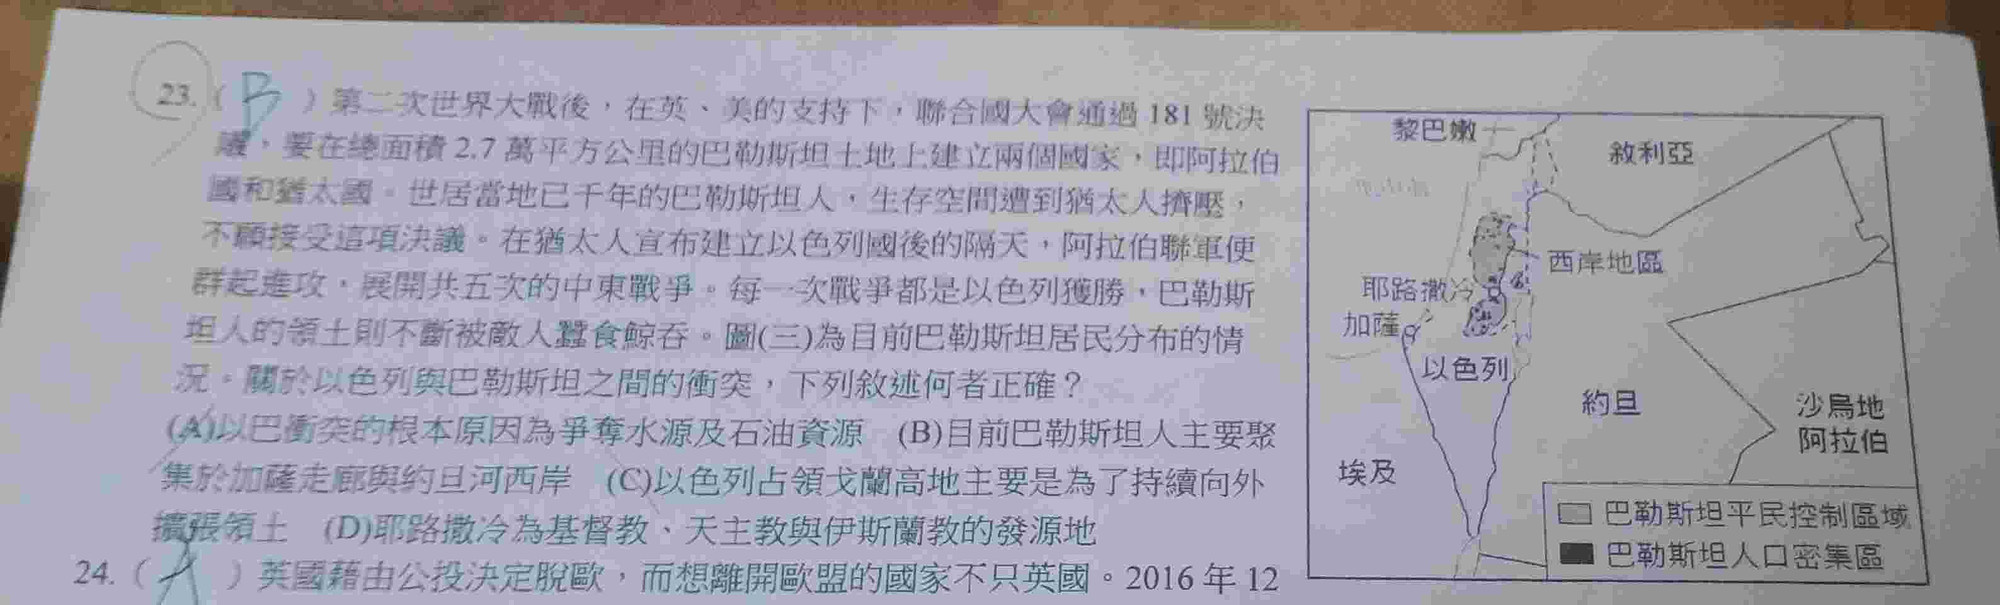 23.( B )第二次世界大戰後，在英、美的支持下，聯合國大會通過 181 號決
議，要在總面積 2.7 萬平方公里的巴勒斯坦土地上建立兩個國家，即阿拉伯
國和猶太國。世居當地已千年的巴勒斯坦人，生存空間遭到猶太人擠壓，
不願接受這項決議。在猶太人宣布建立以色列國後的隔天，阿拉伯聯軍便
群起進攻，展開共五次的中東戰爭。每一次戰爭都是以色列獲勝，巴勒斯
坦人的領土則不斷被敵人蠶食鯨吞。圖(三)為目前巴勒斯坦居民分布的情
況。關於以色列與巴勒斯坦之間的衝突，下列敘述何者正確？
(A)以巴衝突的根本原因為爭奪水源及石油資源 (B)目前巴勒斯坦人主要聚
集於加薩走廊與約旦河西岸 (C)以色列占領戈蘭高地主要是為了持續向外
擴張領土 (D)耶路撒冷為基督教、天主教與伊斯蘭教的發源地
24.( A )英國藉由公投決定脫歐，而想離開歐盟的國家不只英國。2016 年 12
黎巴嫩
敘利亞
西岸地區
耶路撒冷
加薩
以色列
約旦
沙烏地
阿拉伯
埃及
巴勒斯坦平民控制區域
巴勒斯坦人口密集區